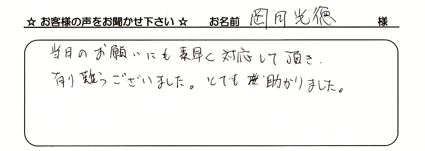 ☆ お客様の声をお聞かせ下さい ☆ お名前 岡田光徳 様
当日のお願いにも素早く対応して頂き、
有り難うございました。とても助かりました。